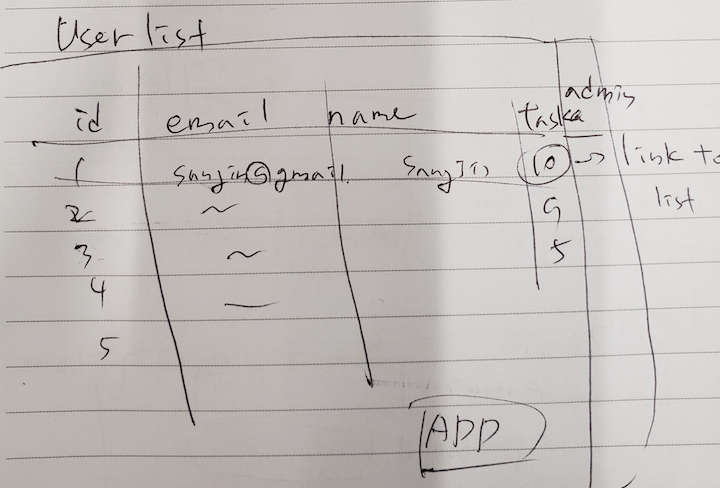 User list
id email name task admin
1 sangjin@gmail. sangjin 10 → link to
2 ~ 9 list
3 ~ 5
4 —
5
ADD